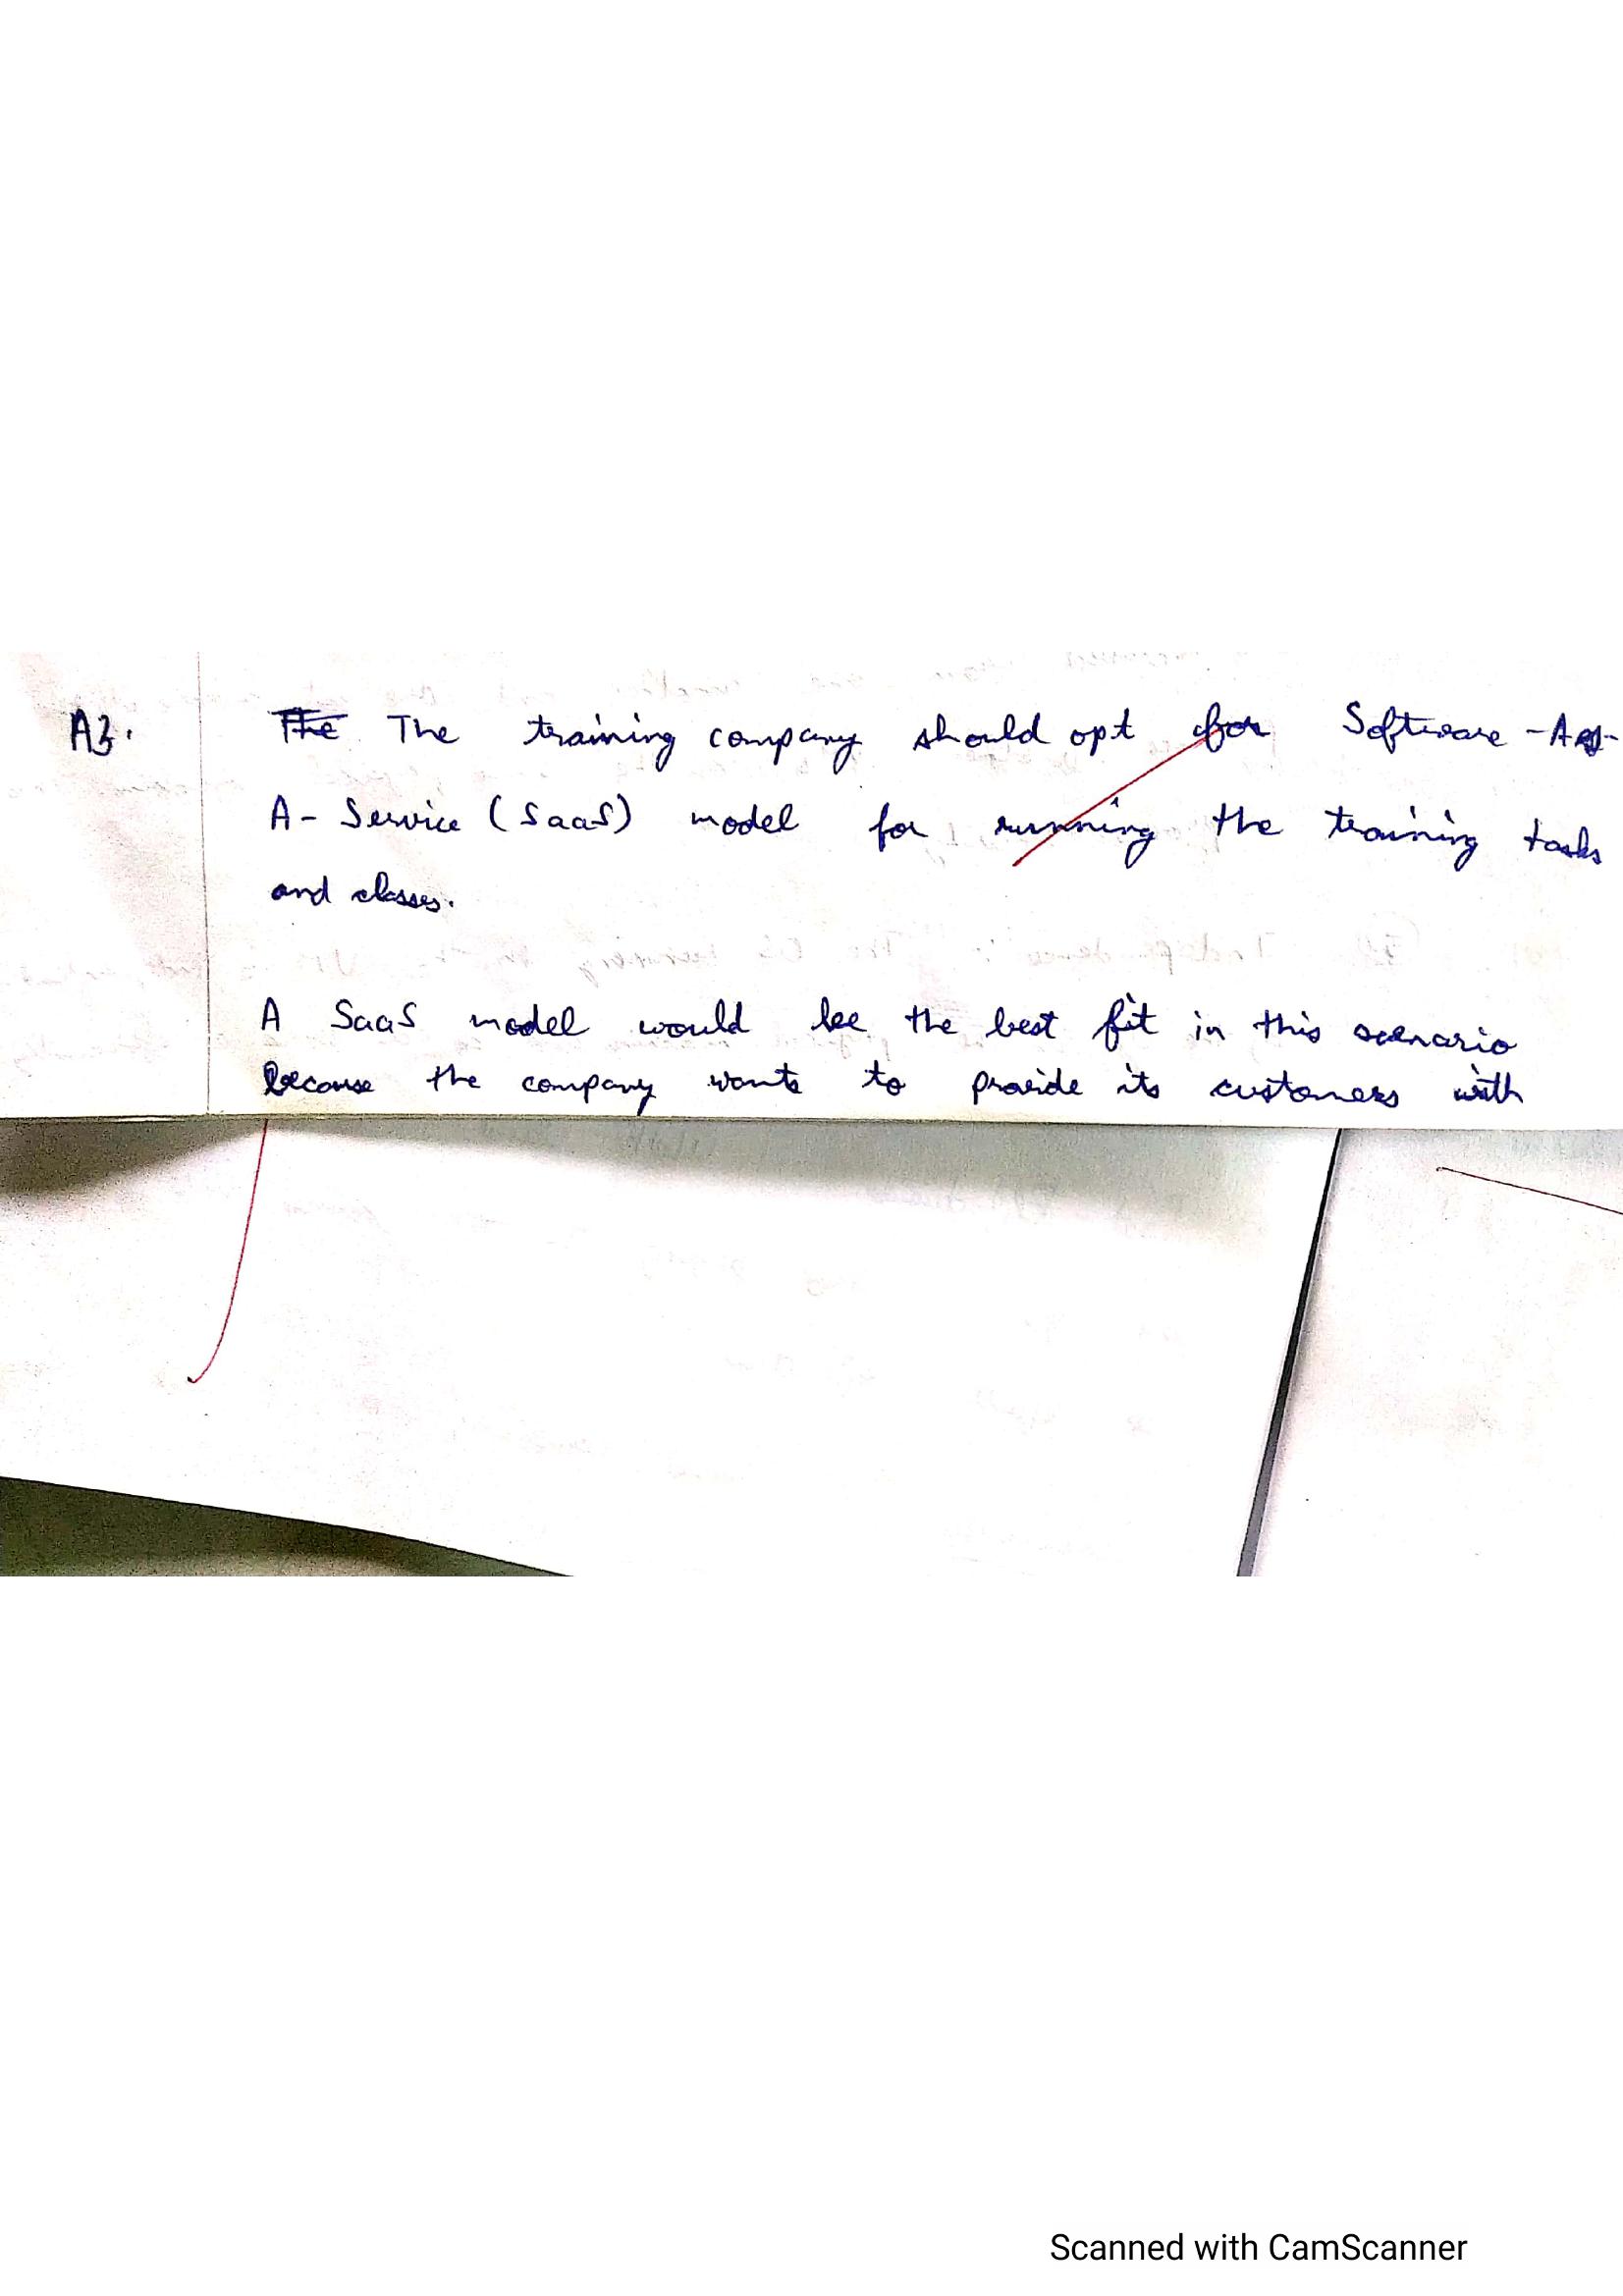 A3. The The training company should opt for Software-As-
A-Service (SaaS) model for running the training tasks
and classes.
A SaaS model would be the best fit in this scenario
because the company wants to provide its customers with
Scanned with CamScanner